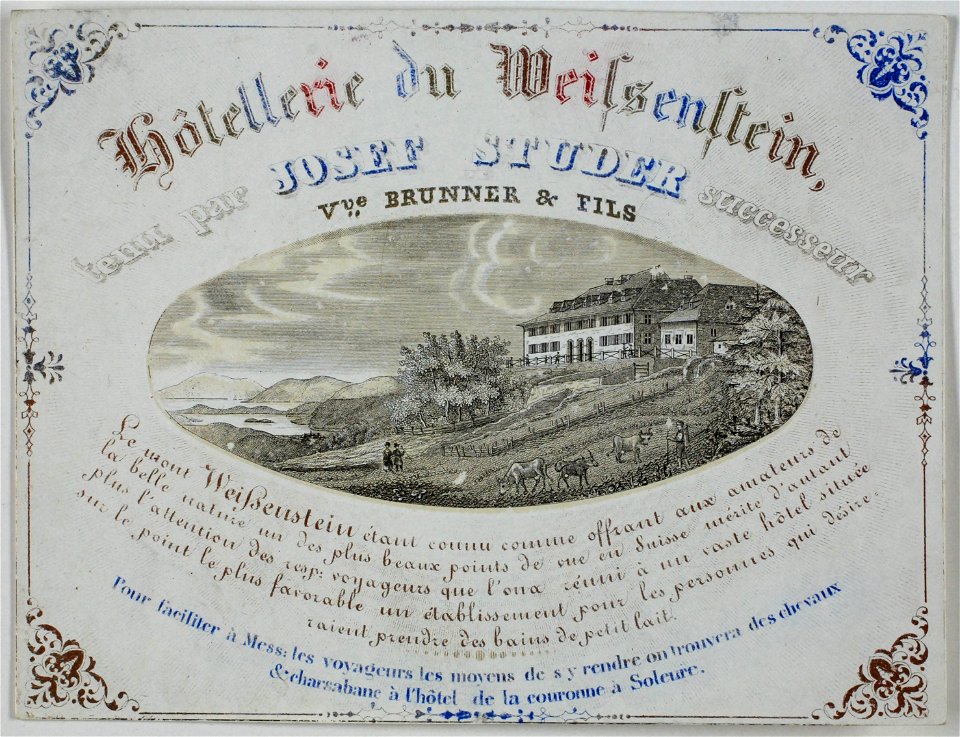 Hôtellerie du Weiſsenſtein,
tenu par JOSEF STUDER successeur
Vve BRUNNER & FILS
Le mont Weißenstein étant connu comme offrant aux amateurs de
la belle nature un des plus beaux points de vue en Suisse mérite d'autant
plus l'attention des resp: voyageurs que l'on a réuni à un vaste hôtel située
sur le point le plus favorable un établissement pour les personnes qui désire-
raient prendre des bains de petit lait.
Pour faciliter à Mess: les voyageurs les moyens de s'y rendre on trouvera des chevaux
& charsabanc à l'hôtel de la couronne à Soleure.